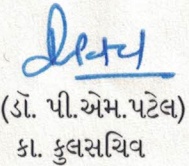 (ડૉ. પી.એમ.પટેલ)
કા. કુલસચિવ